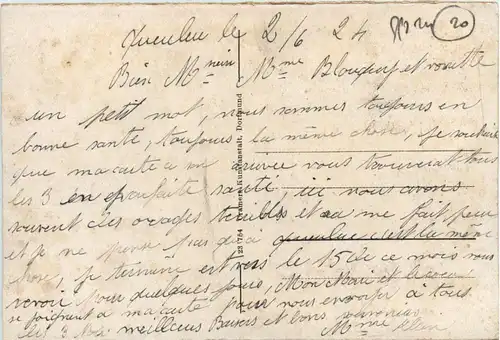 Queuleu le 2/6 24
20
Bien Mme
un petit mot, nous sommes toujours en
bonne santé, toujours la même chose, je souhaite
que ma carte a son arrivée vous trouverat tous
les 3 en parfaite santé, ici nous avons
souvent des orages terribles et sa me fait peur
et je ne pense pas qu'à Queuleu c'est la même
chose, je termine et vers le 15 de ce mois nous
revoir pour quelques jours, Mon Mari
se joignant a ma carte pour vous envoyer à tous
les 3 nos meilleurs Baisers et bons souvenirs
Mme Klein
23 784
Kunstanstalt, Dortmund